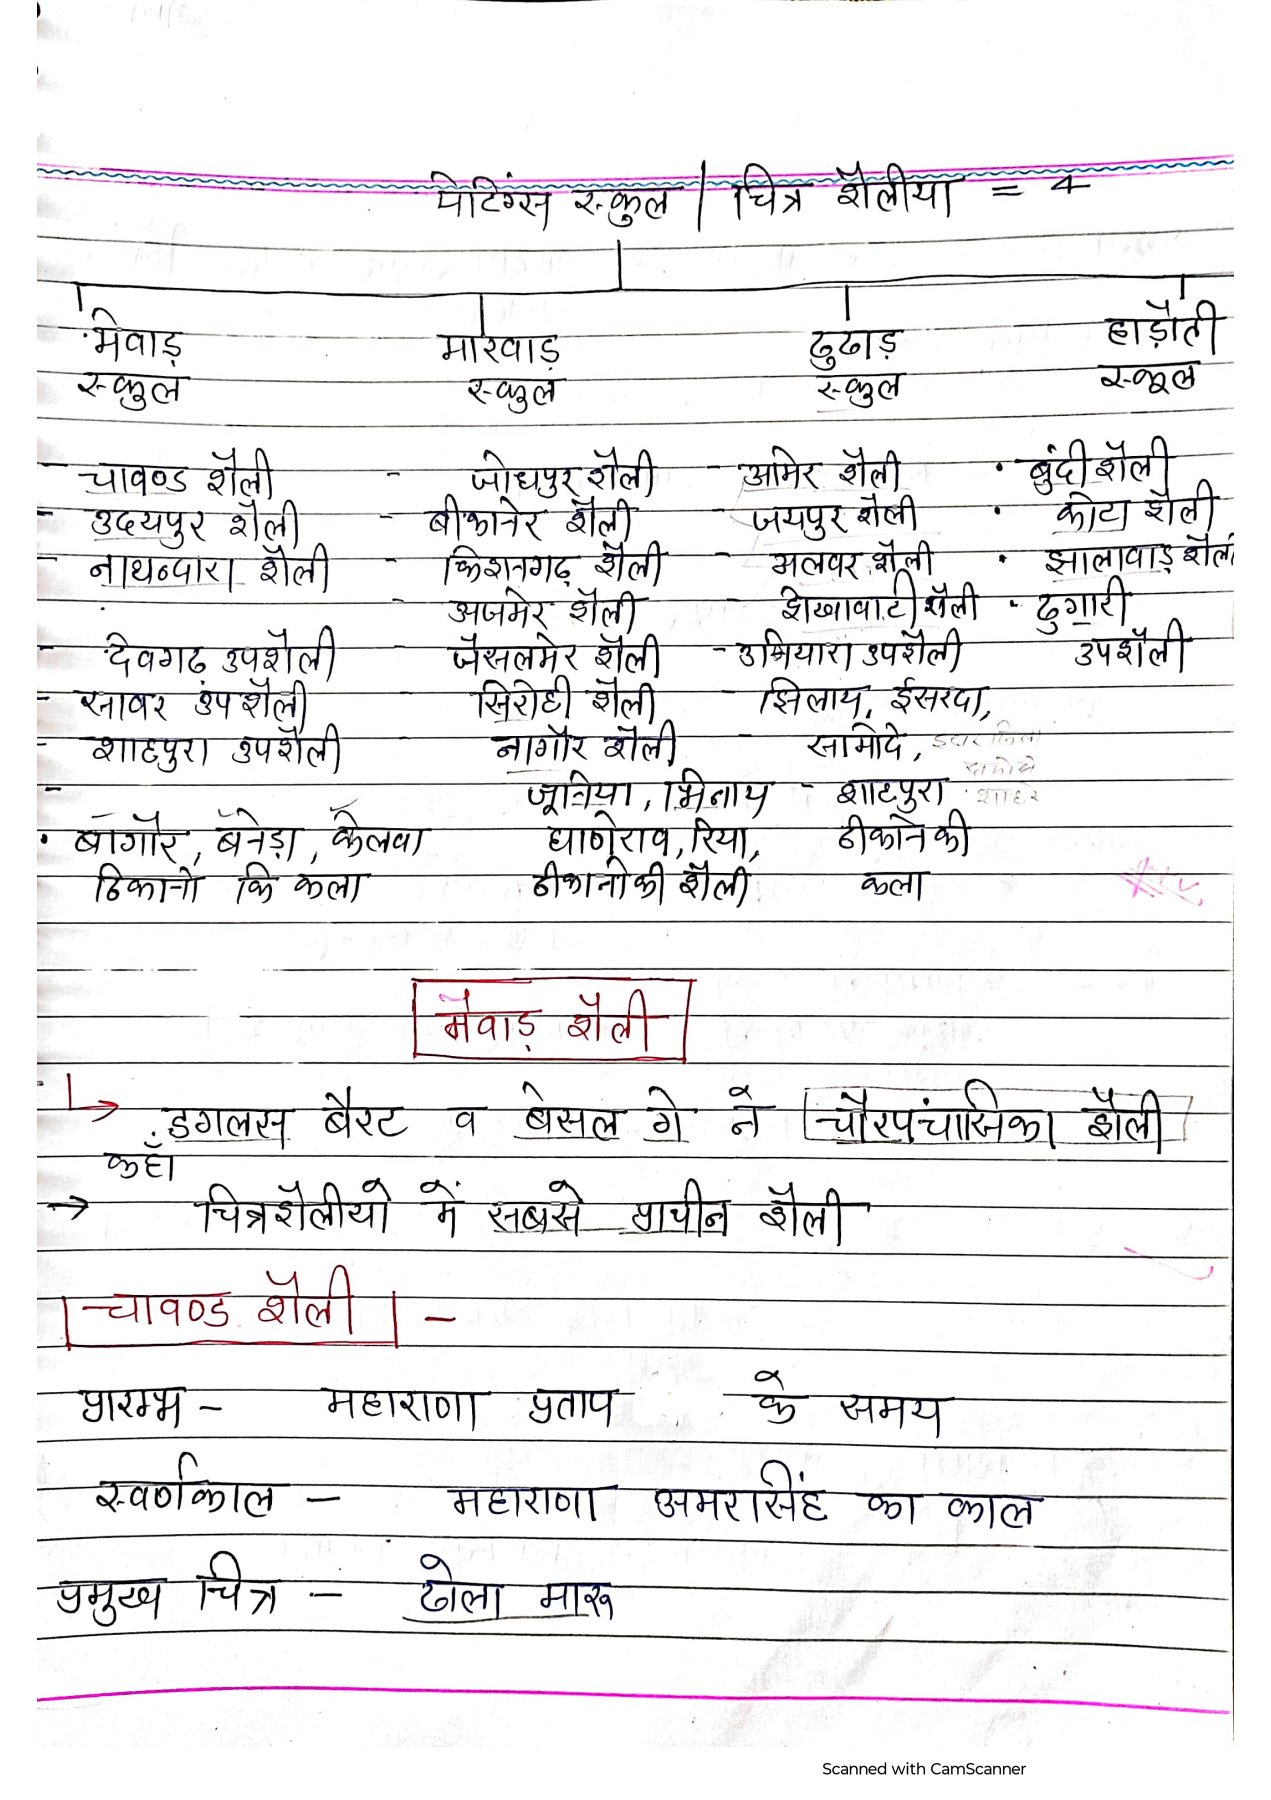 पेटिंग्स स्कुल / चित्र शैलीया = 4
मेवाड़ मारवाड़ ढुढाड़ हाड़ौती
स्कुल स्कुल स्कुल स्कूल
- चावण्ड शैली - जोधपुर शैली - आमेर शैली • बुंदी शैली
- उदयपुर शैली - बीकानेर शैली - जयपुर शैली • कोटा शैली
- नाथव्दारा शैली - किशनगढ़ शैली - अलवर शैली • झालावाड़ शैली
- अजमेर शैली - शेखावाटी शैली • ढुगारी
- देवगढ़ उपशैली - जैसलमेर शैली - उनियारा उपशैली उपशैली
- सावर उपशैली - सिरोही शैली - झिलाय, ईसरदा,
- शाहपुरा उपशैली - नागौर शैली - सामोदे,
- जूनिया, भिनाय - शाहपुरा
• बागौर, बनेड़ा, केलवा घाणेराव, रिया, ठीकाने की
ठिकानो कि कला ठीकानो की शैली कला
मेवाड़ शैली
→ डगलस बैरट व बेसल गे ने चौरपंचासिका शैली
कहाँ
→ चित्रशैलीयो में सबसे प्राचीन शैली
चावण्ड शैली -
प्रारम्भ - महाराणा प्रताप के समय
स्वर्णकाल - महाराणा अमरासिंह का काल
प्रमुख चित्र - ढोला मारू
Scanned with CamScanner